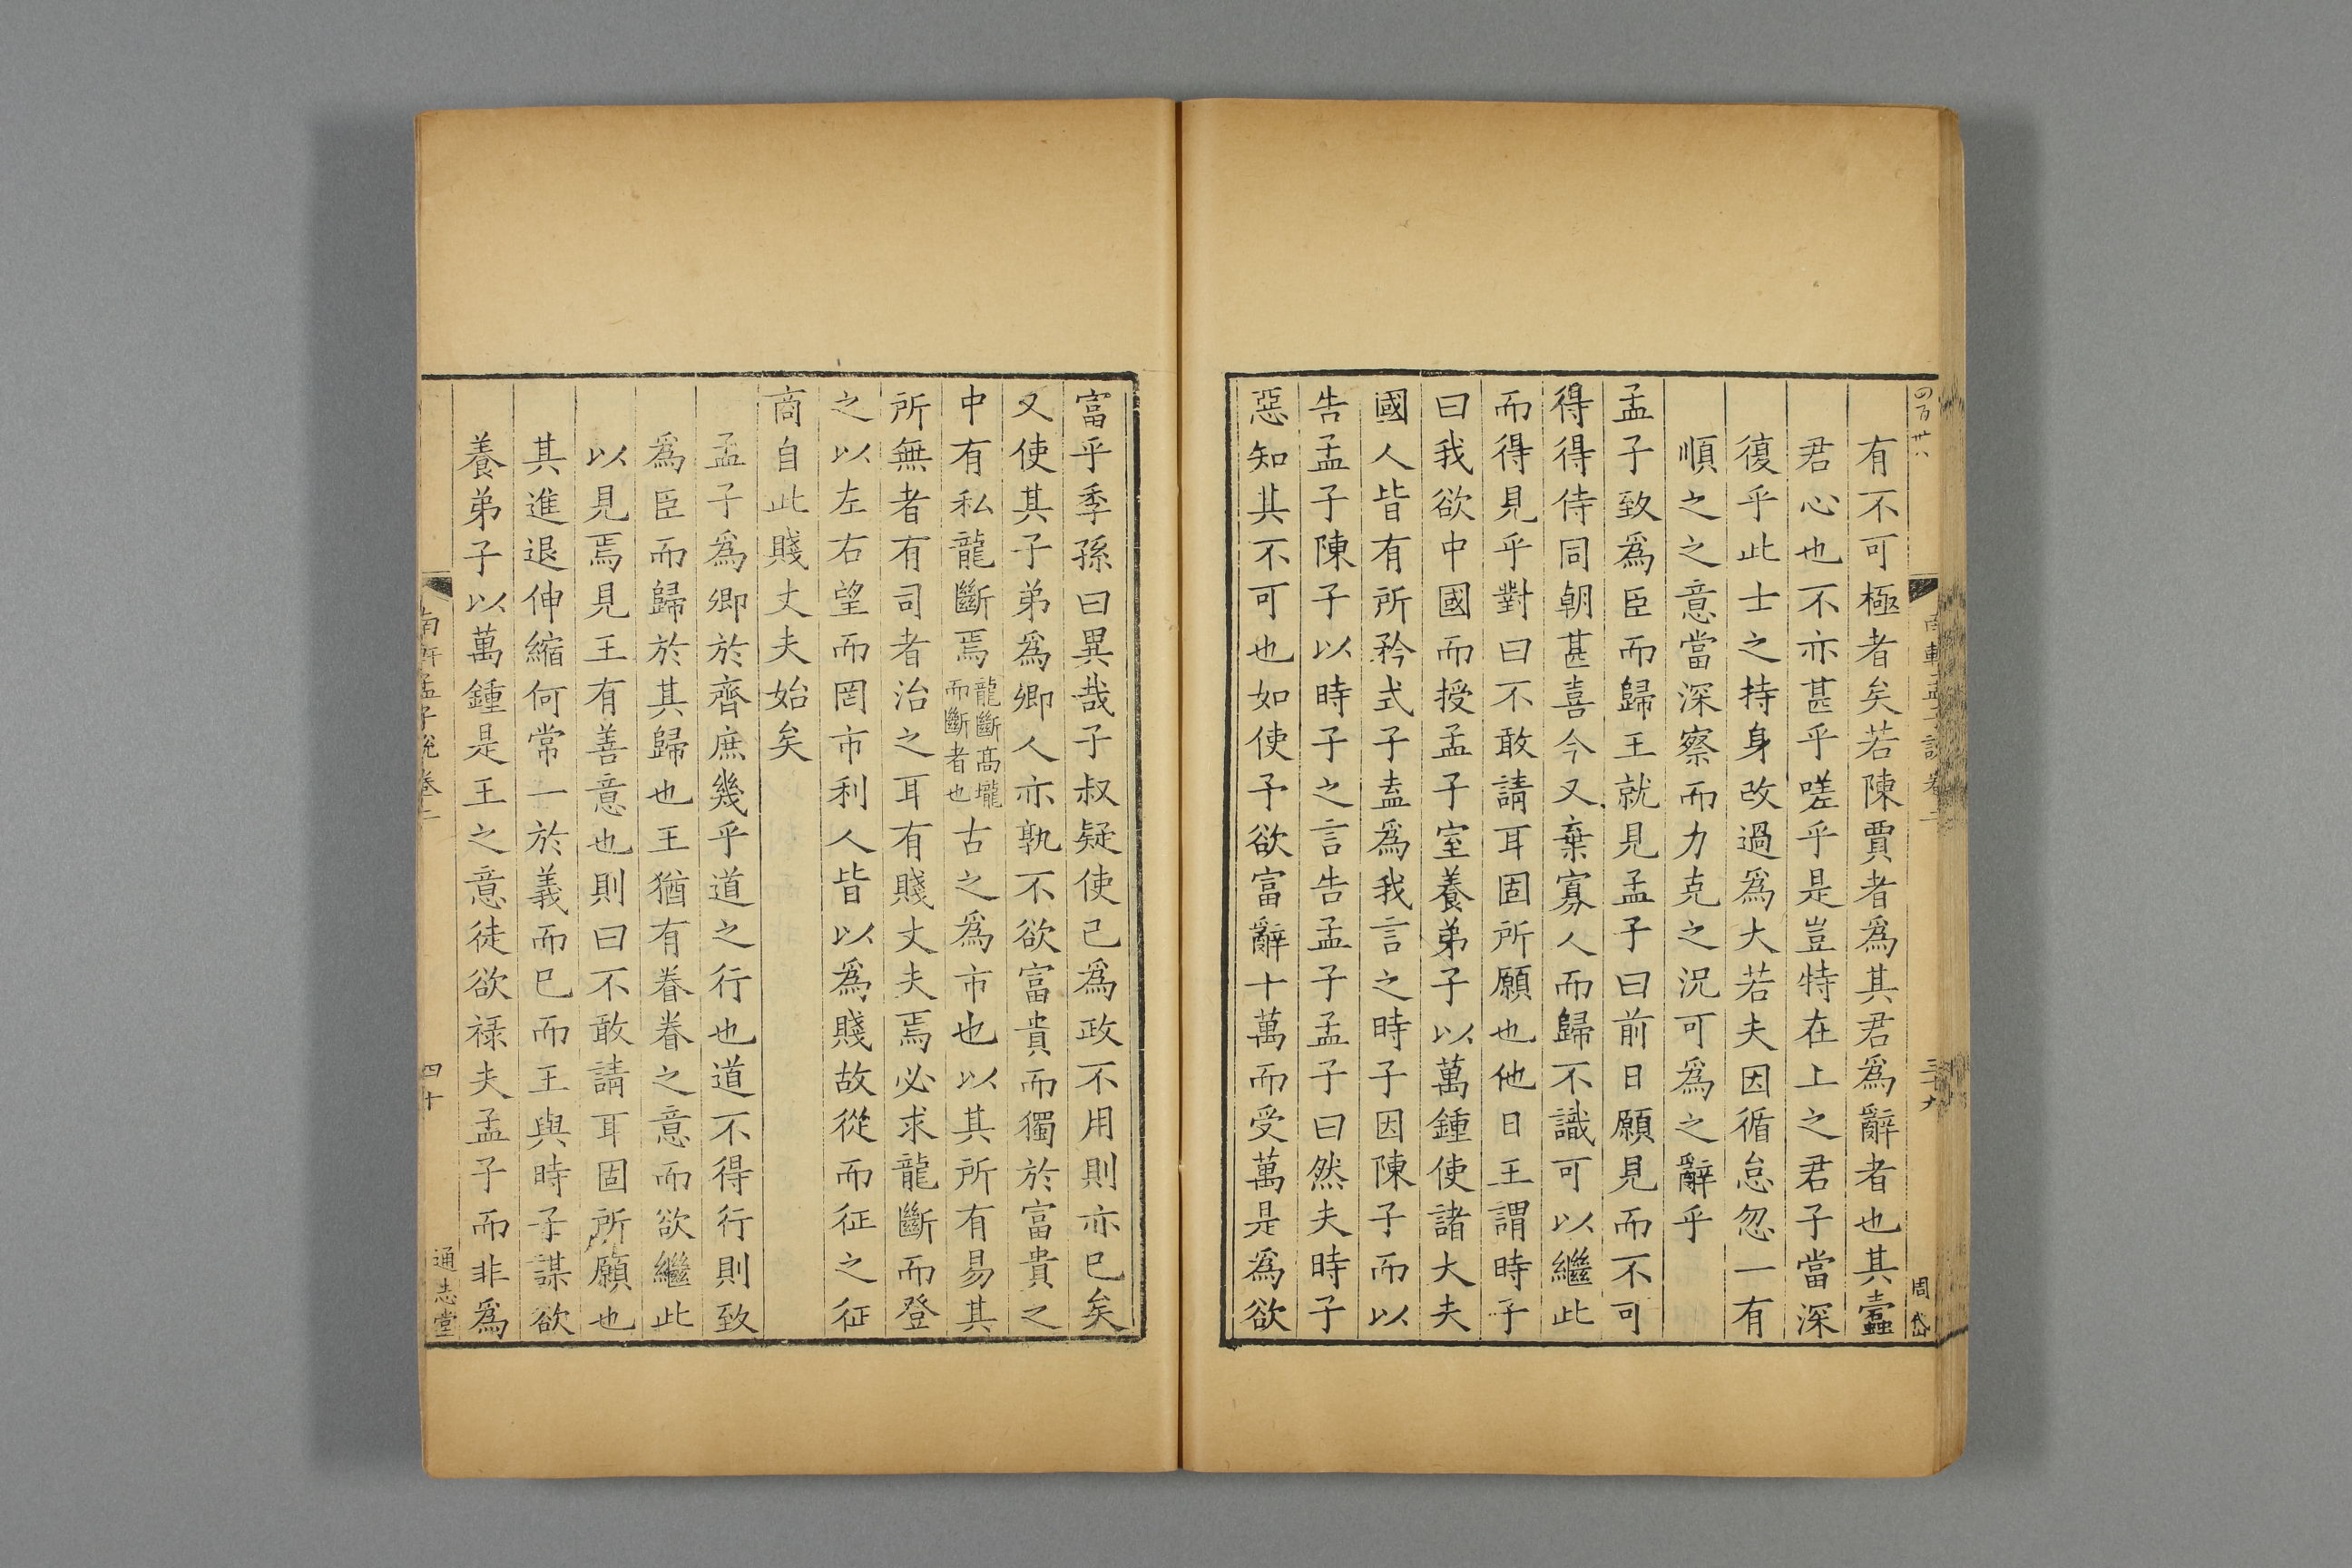 四百卅八
有不可極者矣若陳賈者爲其君爲辭者也其蠹
君心也不亦甚乎嗟乎是豈特在上之君子當深
復乎此士之持身改過爲大若夫因循怠忽一有
順之之意當深察而力克之況可爲之辭乎
孟子致爲臣而歸王就見孟子曰前日願見而不可
得得侍同朝甚喜今又棄寡人而歸不識可以繼此
而得見乎對曰不敢請耳固所願也他日王謂時子
曰我欲中國而授孟子室養弟子以萬鍾使諸大夫
國人皆有所矜式子盍爲我言之時子因陳子而以
告孟子陳子以時子之言告孟子孟子曰然夫時子
惡知其不可也如使予欲富辭十萬而受萬是爲欲
周岱
富乎季孫曰異哉子叔疑使己爲政不用則亦已矣
又使其子弟爲卿人亦孰不欲富貴而獨於富貴之
中有私龍斷焉龍斷高壠而斷者也古之爲市也以其所有易其
所無者有司者治之耳有賤丈夫焉必求龍斷而登
之以左右望而罔市利人皆以爲賤故從而征之征
商自此賤丈夫始矣
孟子爲卿於齊庶幾乎道之行也道不得行則致
爲臣而歸於其歸也王猶有眷眷之意而欲繼此
以見焉見王有善意也則曰不敢請耳固所願也
其進退伸縮何常一於義而已而王與時子謀欲
養弟子以萬鍾是王之意徒欲祿夫孟子而非爲
南軒孟子說卷二
四十
通志堂